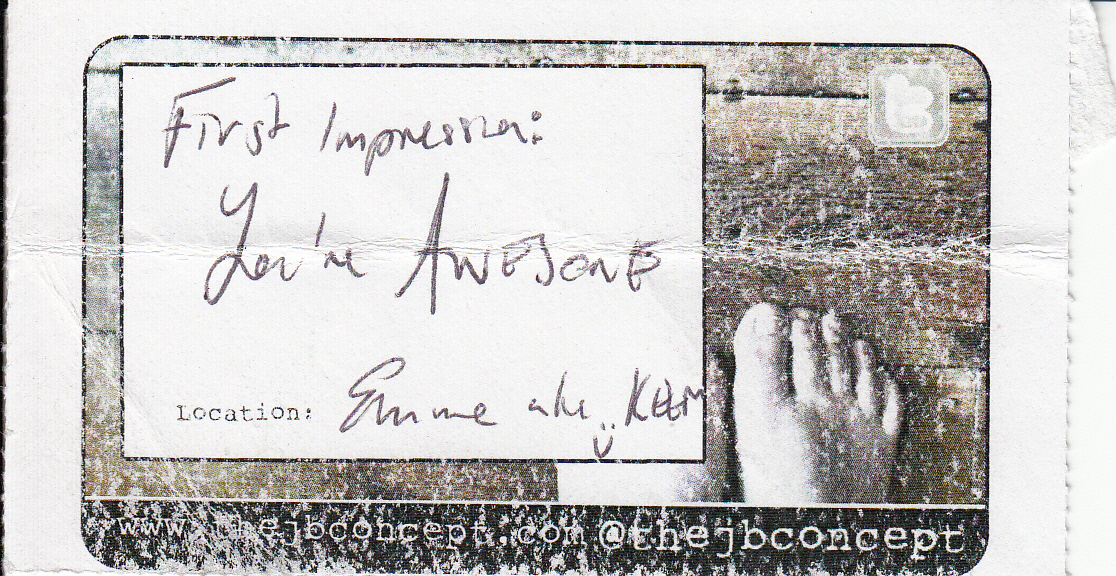 First Impression:
You're AWESOME
Location: Emme aka KEEM
www.thejbconcept.com @thejbconcept